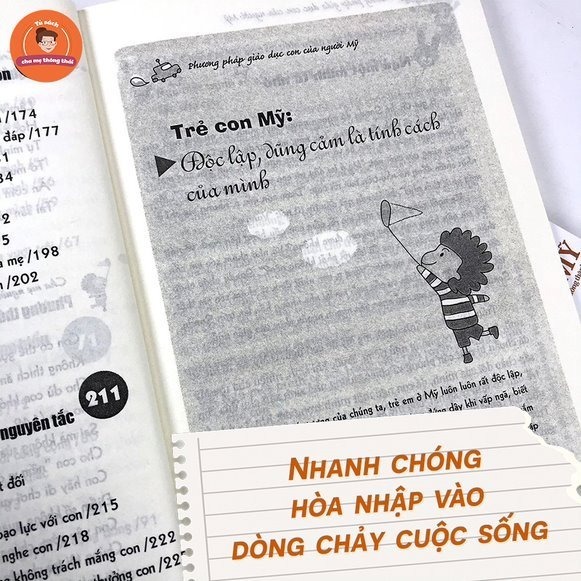 Tủ sách
cha mẹ thông thái
on
/174
đáp /177
34
mẹ /198
/202
nguyên tắc
211
t đối
bạo lực với con /215
nghe con /218
không trách mắng con /222
thưởng con /225
Phương pháp giáo dục con của người Mỹ
Trẻ con Mỹ:
Độc lập, dũng cảm là tính cách
của mình
của chúng ta, trẻ em ở Mỹ luôn luôn rất độc lập,
đứng dậy khi vấp ngã, biết
MỸ
NHANH CHÓNG
HÒA NHẬP VÀO
DÒNG CHẢY CUỘC SỐNG